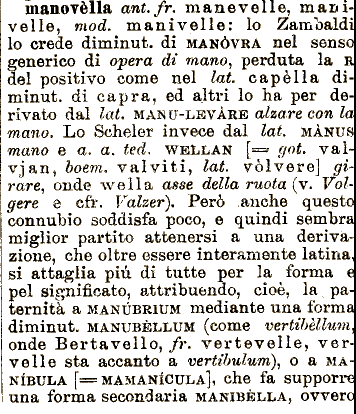 manovèlla ant. fr. manevelle, mani-
velle, mod. manivelle: lo Zambaldi
lo crede diminut. di MANÒVRA nel senso
generico di opera di mano, perduta la R
del positivo come nel lat. capèlla di-
minut. di capra, ed altri lo ha per de-
rivato dal lat. MANU-LEVÀRE alzare con la
mano. Lo Scheler invece dal lat. MÀNUS
mano e a. a. ted. WELLAN [= got. val-
vjan, boem. valviti, lat. vòlvere] gi-
rare, onde wella asse della ruota (v. Vol-
gere e cfr. Valzer). Però anche questo
connubio soddisfa poco, e quindi sembra
miglior partito attenersi a una deriva-
zione, che oltre essere interamente latina,
si attaglia più di tutte per la forma e
pel significato, attribuendo, cioè, la pa-
ternità a MANÚBRIUM mediante una forma
diminut. MANUBÈLLUM (come vertibèllum,
onde Bertavello, fr. vertevelle, ver-
velle sta accanto a vertibulum), o a MA-
NÍBULA [= MAMANÍCULA], che fa supporre
una forma secondaria MANIBÈLLA, ovvero